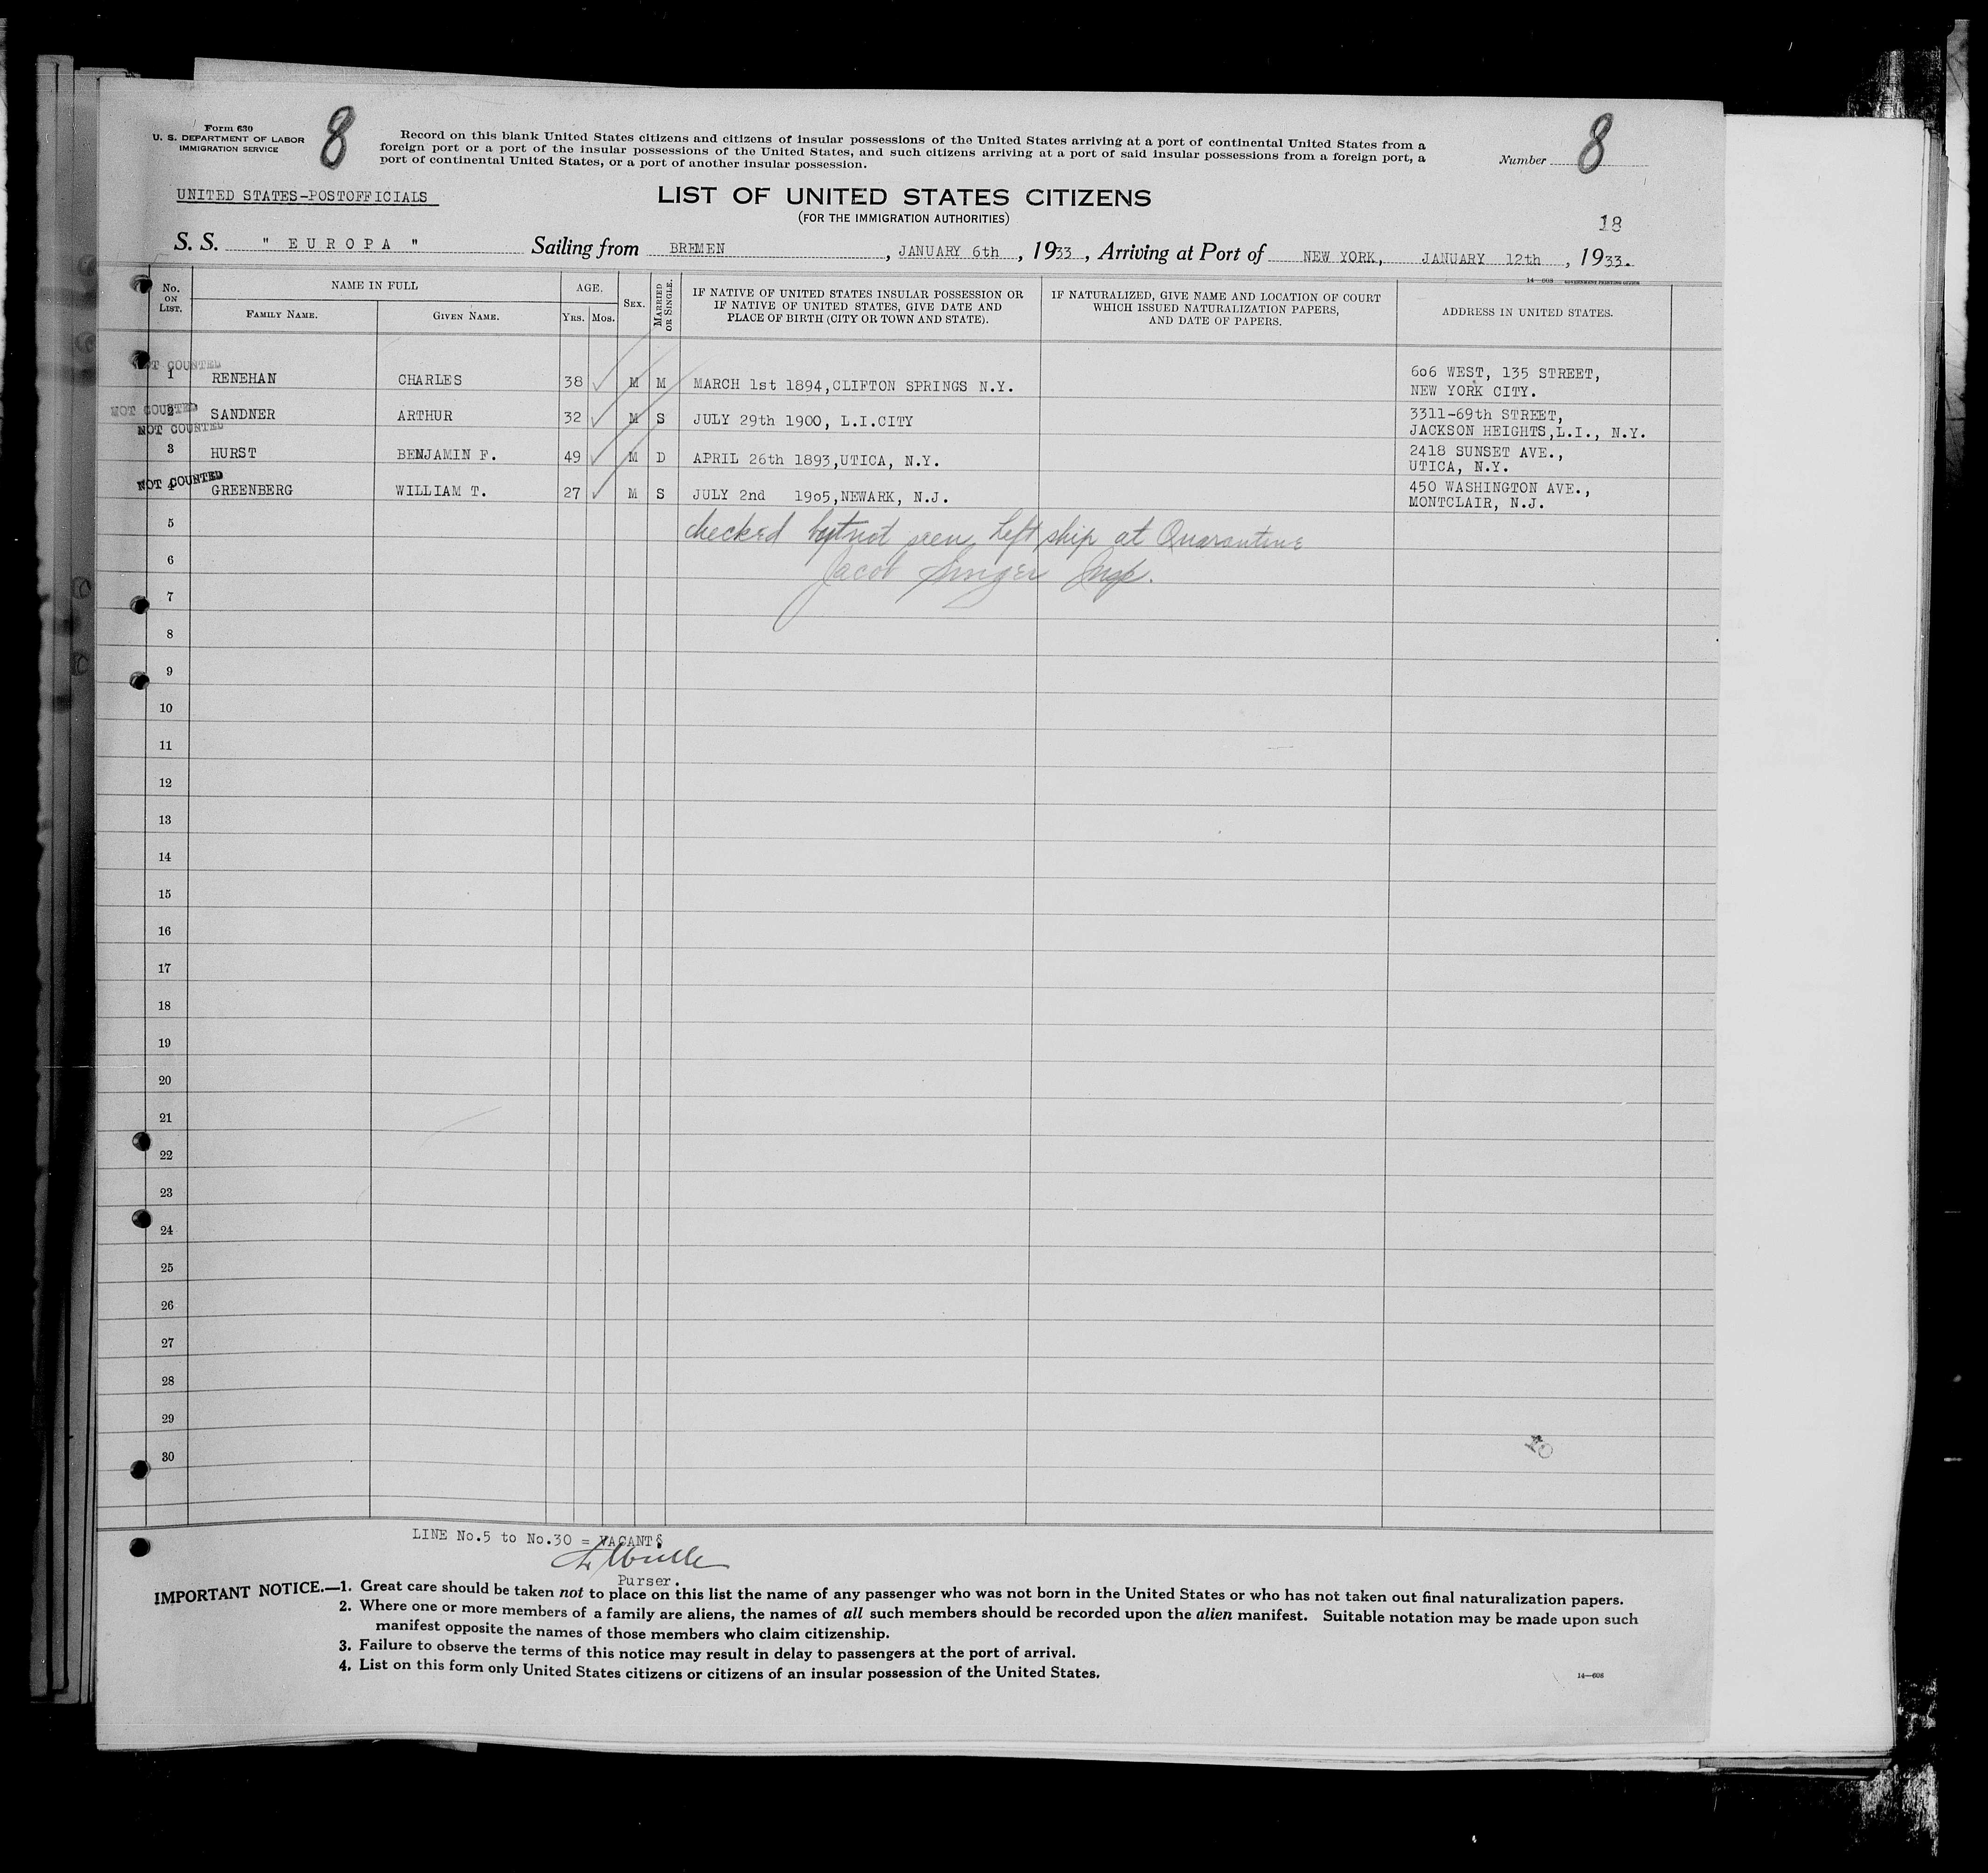 Form 630
U. S. DEPARTMENT OF LABOR
IMMIGRATION SERVICE
8
Record on this blank United States citizens and citizens of insular possessions of the United States arriving at a port of continental United States from a
foreign port or a port of the insular possessions of the United States, and such citizens arriving at a port of said insular possessions from a foreign port, a
port of continental United States, or a port of another insular possession.
Number 8
UNITED STATES-POSTOFFICIALS
LIST OF UNITED STATES CITIZENS
(FOR THE IMMIGRATION AUTHORITIES)
18
S. S. " E U R O P A " Sailing from BREMEN, JANUARY 6th, 1933, Arriving at Port of NEW YORK, JANUARY 12th, 1933.
14—608 GOVERNMENT PRINTING OFFICE
No. ON LIST. NAME IN FULL FAMILY NAME. GIVEN NAME. AGE. YRS. MOS. SEX. MARRIED OR SINGLE. IF NATIVE OF UNITED STATES INSULAR POSSESSION OR IF NATIVE OF UNITED STATES, GIVE DATE AND PLACE OF BIRTH (CITY OR TOWN AND STATE). IF NATURALIZED, GIVE NAME AND LOCATION OF COURT WHICH ISSUED NATURALIZATION PAPERS, AND DATE OF PAPERS. ADDRESS IN UNITED STATES.
NOT COUNTED
1 RENEHAN CHARLES 38 M M MARCH 1st 1894,CLIFTON SPRINGS N.Y. 606 WEST, 135 STREET,
NEW YORK CITY.
NOT COUNTED
2 SANDNER ARTHUR 32 M S JULY 29th 1900, L.I.CITY 3311-69th STREET,
JACKSON HEIGHTS,L.I., N.Y.
NOT COUNTED
3 HURST BENJAMIN F. 49 M D APRIL 26th 1893,UTICA, N.Y. 2418 SUNSET AVE.,
UTICA, N.Y.
NOT COUNTED
4 GREENBERG WILLIAM T. 27 M S JULY 2nd 1905,NEWARK, N.J. 450 WASHINGTON AVE.,
MONTCLAIR, N.J.
5 checked but not seen, Left ship at Quarantine
6 Jacob Singer Insp.
7
8
9
10
11
12
13
14
15
16
17
18
19
20
21
22
23
24
25
26
27
28
29
30
LINE No.5 to No.30 = VACANT
Purser.
IMPORTANT NOTICE.—1. Great care should be taken not to place on this list the name of any passenger who was not born in the United States or who has not taken out final naturalization papers.
2. Where one or more members of a family are aliens, the names of all such members should be recorded upon the alien manifest. Suitable notation may be made upon such
manifest opposite the names of those members who claim citizenship.
3. Failure to observe the terms of this notice may result in delay to passengers at the port of arrival.
4. List on this form only United States citizens or citizens of an insular possession of the United States.
14—608